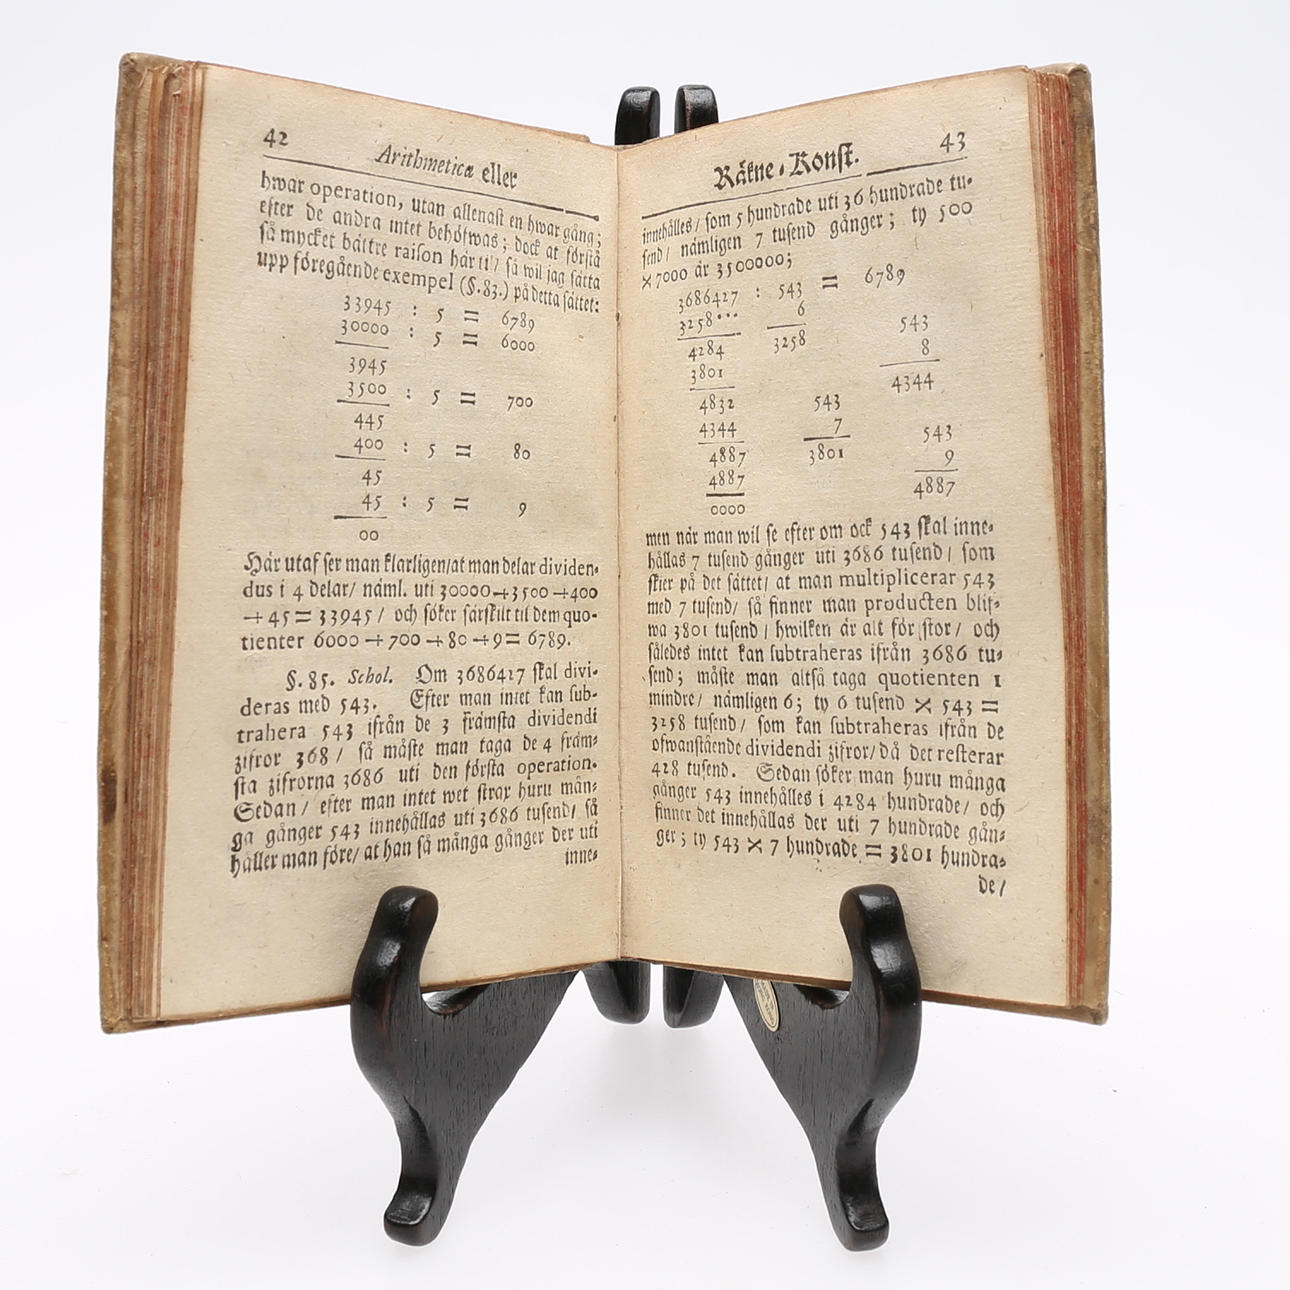 42 Arithmetica eller
hwar operation, utan allenast en hwar gång;
efter de andra intet behöfwas; dock at förstå
så mycket bättre raison här til/ så wil jag sätta
upp föregående exempel (§.83.) på detta sättet:
33945 : 5 = 6789
30000 : 5 = 6000
3945
3500 : 5 = 700
445
400 : 5 = 80
45
45 : 5 = 9
00
Här utaf ser man klarligen/at man delar dividen-
dus i 4 delar/ näml. uti 30000+3500+400
+45=33945/ och söker särskilt til dem quo-
tienter 6000+700+80+9=6789.
§. 85. Schol. Om 3686427 skal divi-
deras med 543. Efter man intet kan sub-
trahera 543 ifrån de 3 främsta dividendi
zifror 368/ så måste man taga de 4 främ-
sta zifrorna 3686 uti den första operation.
Sedan/ efter man intet wet strax huru mån-
ga gånger 543 innehållas uti 3686 tusend/ så
håller man före/ at han så många gånger der uti
inne-
Räkne-Konst. 43
innehålles/ som 5 hundrade uti 36 hundrade tu-
send/ nämligen 7 tusend gånger; ty 500
×7000 är 3500000;
3686427 : 543 = 6789
3258... 6 543
4284 3258 8
3801 4344
4832 543
4344 7 543
4887 3801 9
4887 4887
0000
men när man wil se efter om ock 543 skal inne-
hållas 7 tusend gånger uti 3686 tusend/ som
skier på det sättet/ at man multiplicerar 543
med 7 tusend/ så finner man producten blif-
wa 3801 tusend/ hwilken är alt för stor/ och
således intet kan subtraheras ifrån 3686 tu-
send; måste man altså taga quotienten 1
mindre/ nämligen 6; ty 6 tusend × 543 =
3258 tusend/ som kan subtraheras ifrån de
ofwanstående dividendi zifror/ då det resterar
428 tusend. Sedan söker man huru många
gånger 543 innehålles i 4284 hundrade/ och
finner det innehållas der uti 7 hundrade gån-
ger; ty 543 × 7 hundrade = 3801 hundra-
de/